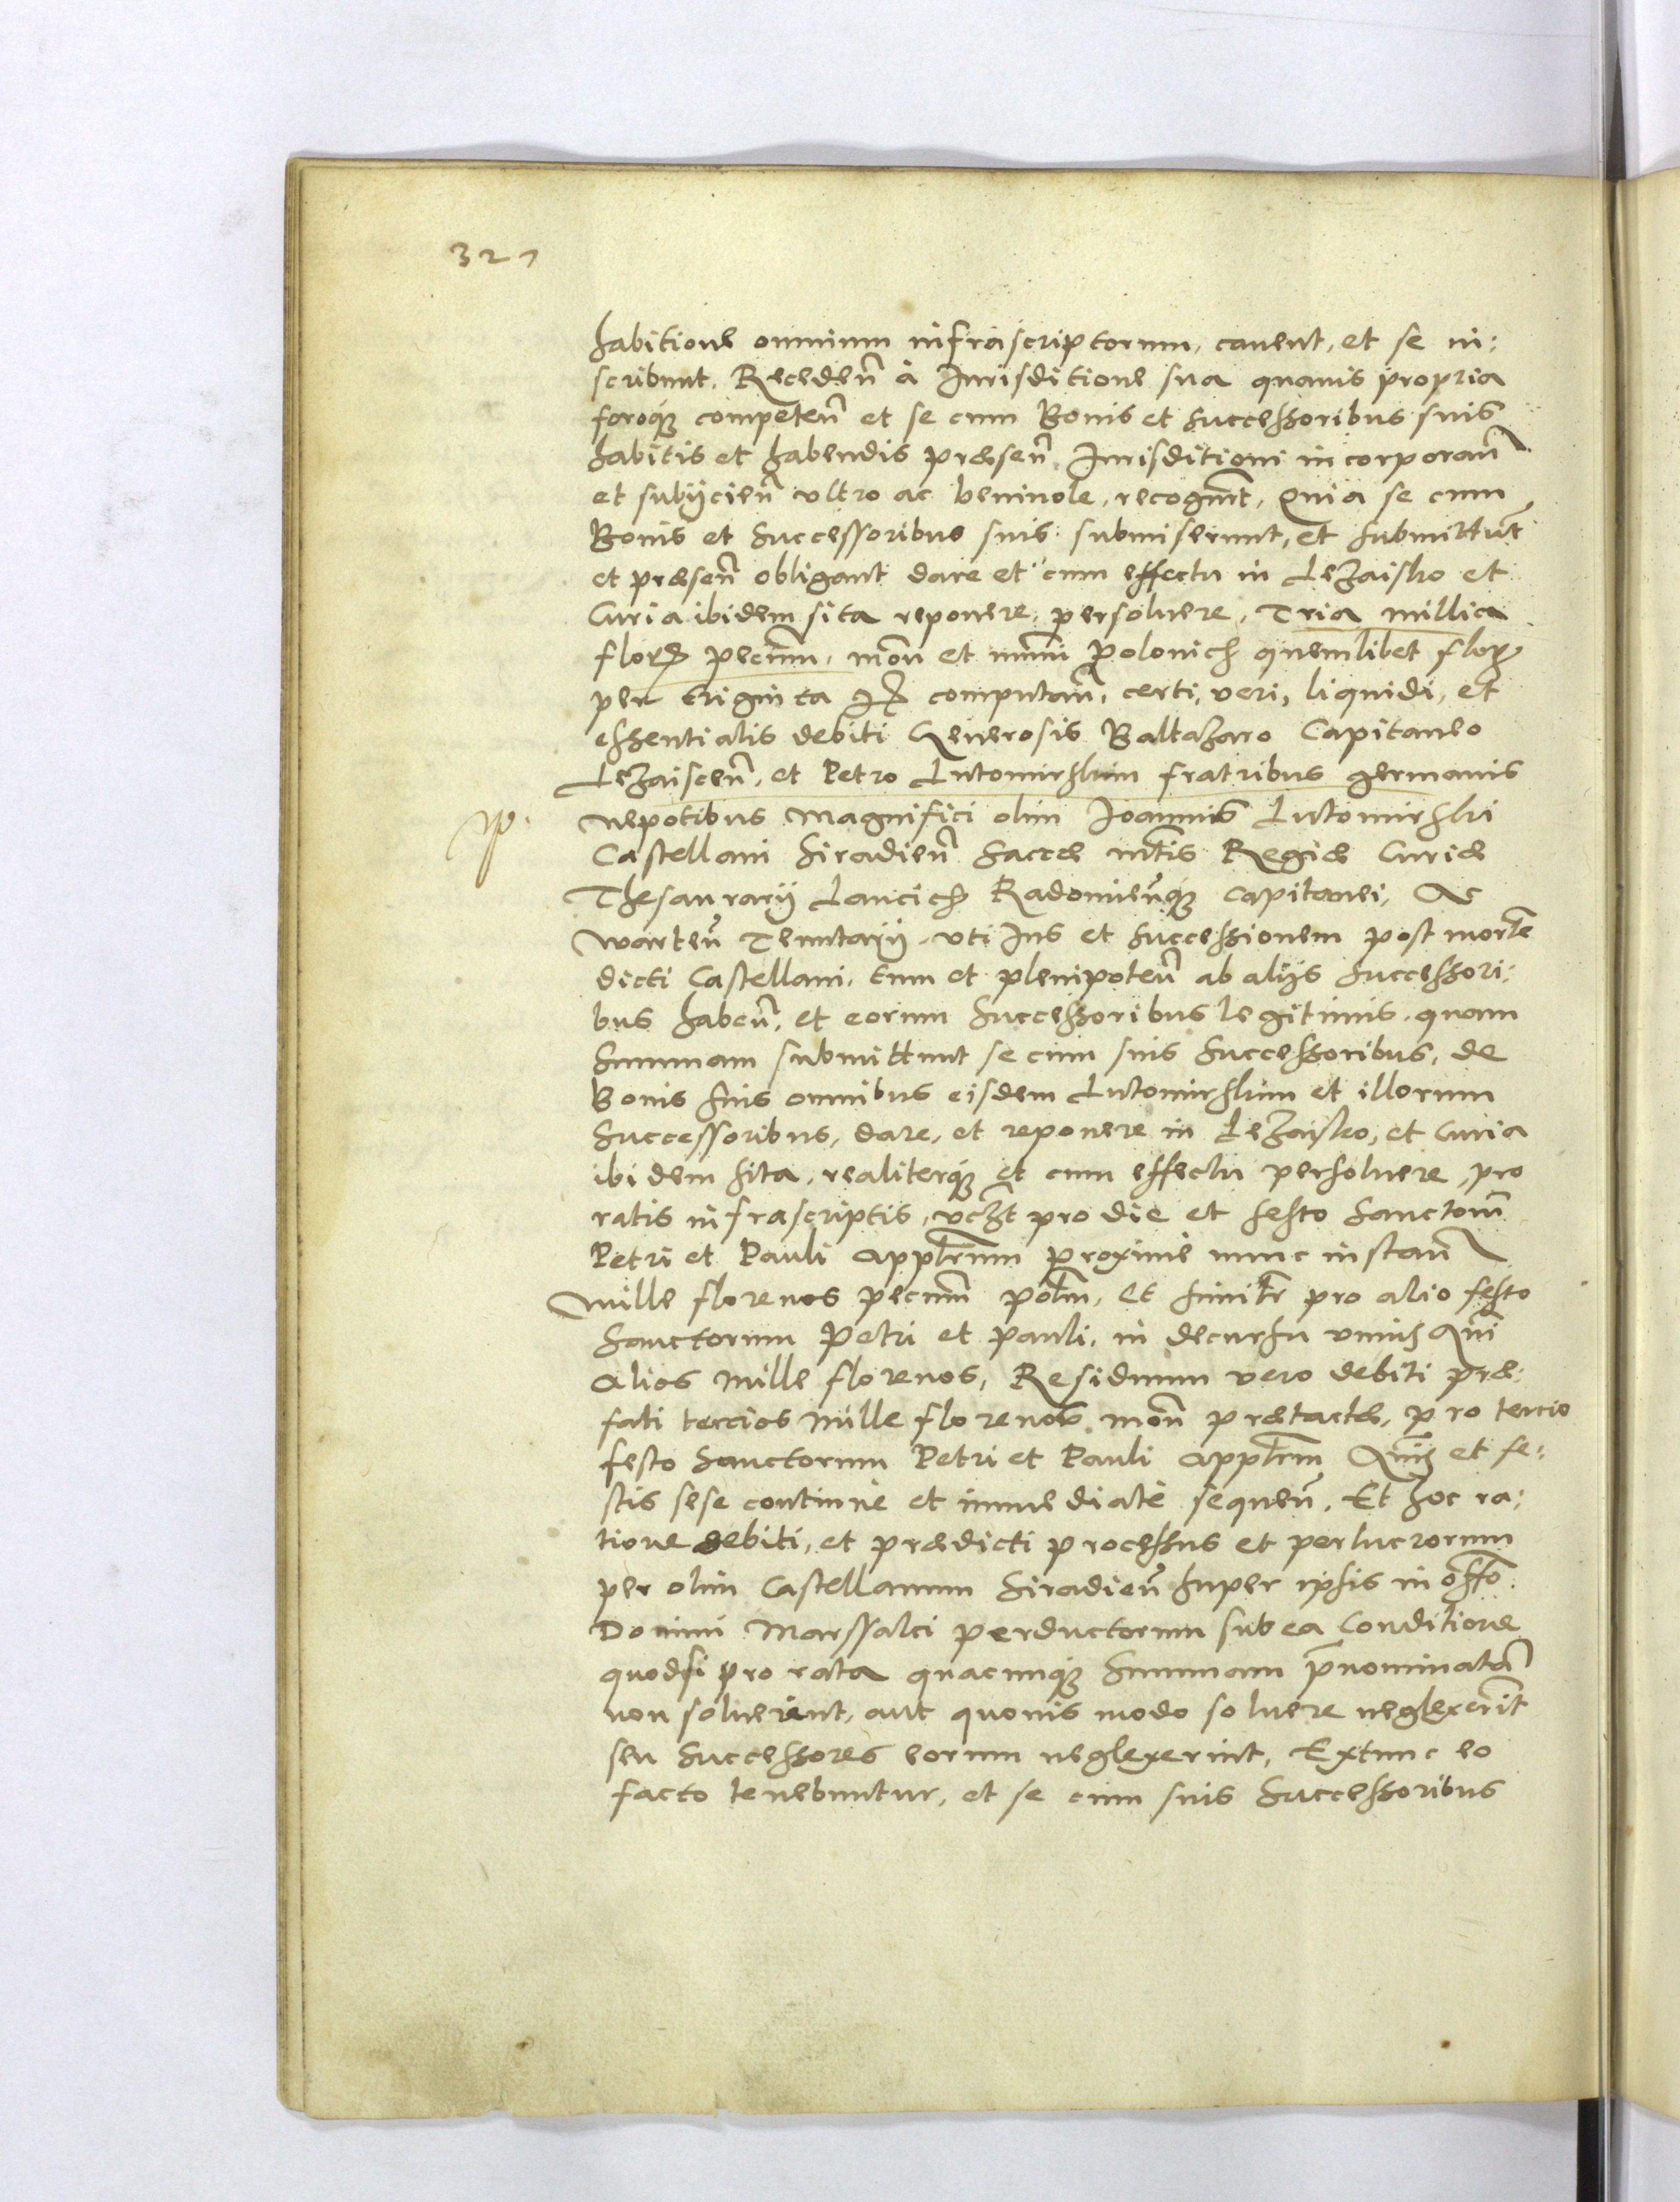 321
habitione omnium infrascriptorum, cavent, et se in:
scribunt. Recedeñ à Jurisditione sua quavis propria
foroque competeñ et se cum Bonis et successoribus suis
habitis et habendis præseñ Jurisditioni incorporañ
et subijcieñ ultro ac benivole, recogñt, Quia se cum
Bonis et successoribus suis submiserunt, et submittũt
et præseñ obligant dare et cum effectu in Lezaisko et
Curia ibidem sita reponere, persolvere, Tria millia
flor pecũn, moñ et nũmi Polonich quemlibet flor
per triginta computañ, certi, veri, liquidi, et
essentialis debiti Generosis Baltazaro Capitaneo
Lezaisceñ, et Petro Lutomirskim fratribus germanis
nepotibus Magnifici olim Joannis Lutomirski
Castellani Siradieñ Saccæ mtis Regiæ Curiæ
Thesaurarij Lancich Radomieñque capitanei, Ac
Warteñ Tenutarij, uti Jus et successionem post mortẽ
dicti Castellani, tum et plenipoteñ ab alijs successori:
bus habeñ, et eorum successoribus legitimis, quam
summam submittunt se cum suis successoribus, de
Bonis suis omnibus eisdem Lutomirskim et illorum
successoribus, dare, et reponere in Lezaisko, et Curia
ibidem sita, realiterque et cum effectu persolvere, pro
ratis infrascriptis, vczt pro die et festo Sanctorũ
Petri et Pauli Appłrum proxime nunc instañ
Mille florenos pecũn połm, Et simiłr pro alio festo
Sanctorum Petri et Pauli, in decursu unius Añi
Alios Mille florenos, Residuum vero debiti præ:
fati tercios Mille florenos moñ prætactæ, pro tercio
festo Sanctorum Petri et Pauli Appłrm Añis et fe:
stis sese continue et immediate sequeñ. Et hoc ra:
tione debiti, et prædicti processus et perlucrorum
per olim Castellanum Siradieñ super ipsis in offo
Domini Marssalci perductorum sub ea Conditione
quodsi pro rata quacunque summam p̃nominatã
non solverint, aut quovis modo solvere neglexerit
seu successores eorum neglexerint, Extunc eo
facto tenebuntur, et se cum suis successoribus